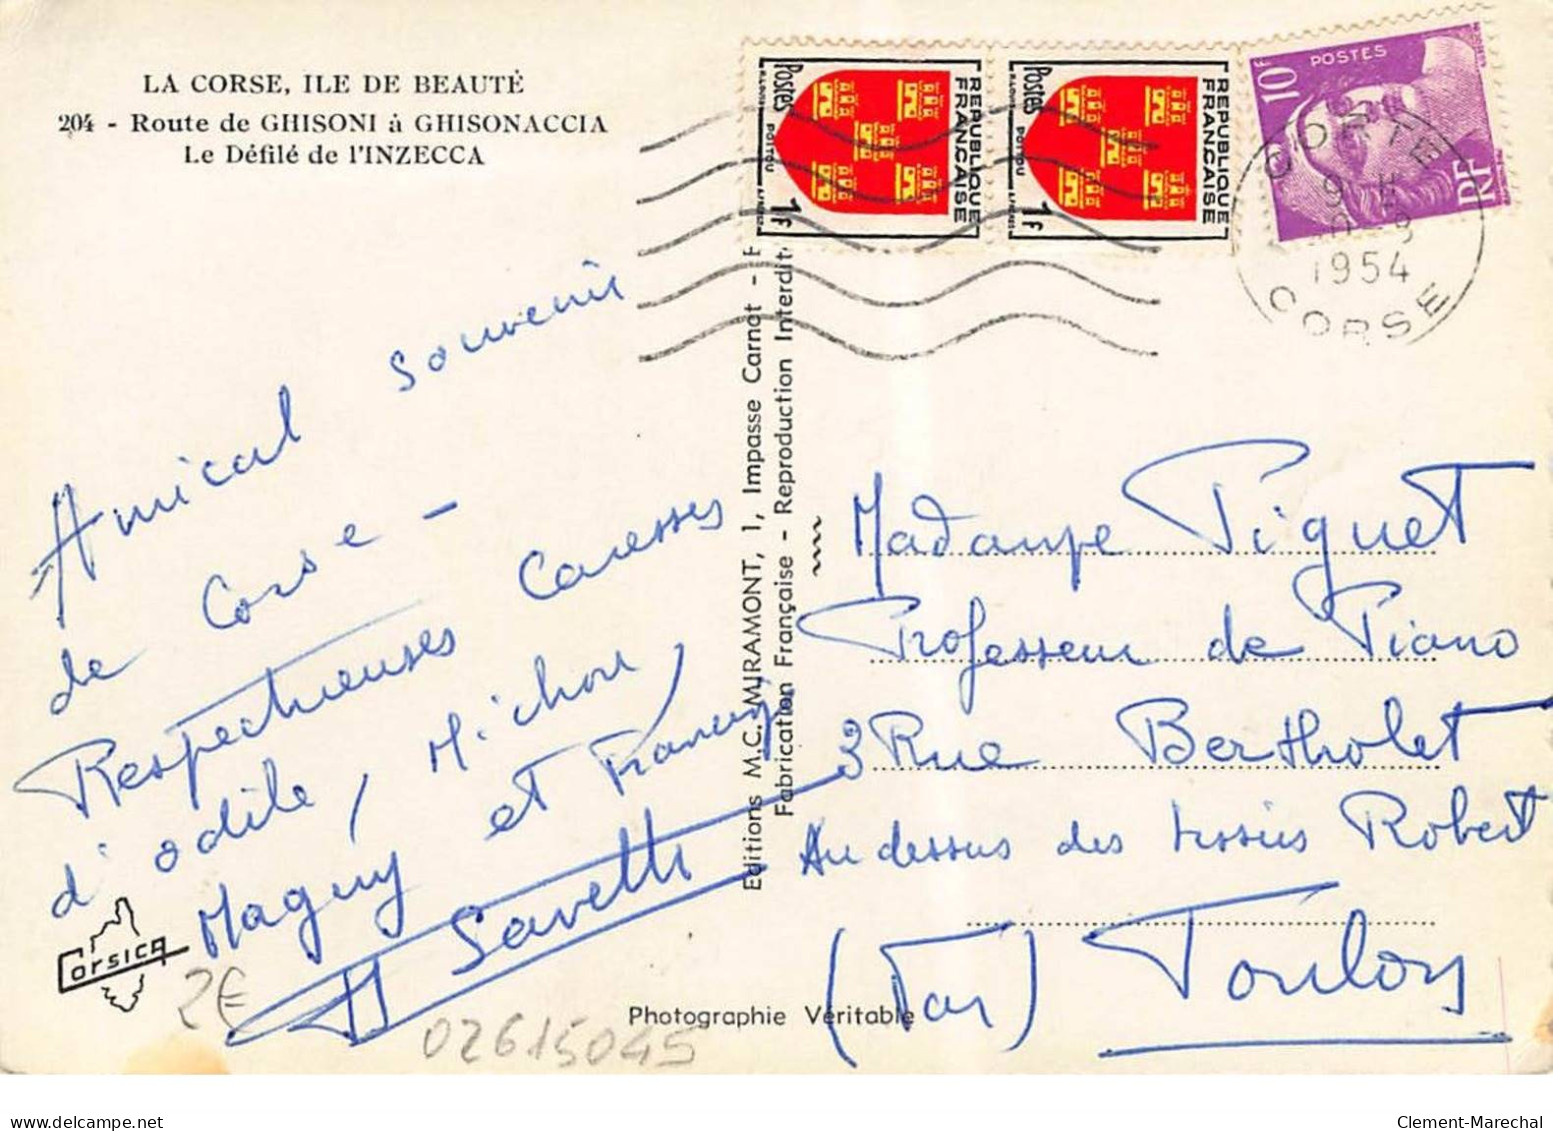 LA CORSE, ILE DE BEAUTÉ
204 - Route de GHISONI à GHISONACCIA
Le Défilé de l'INZECCA
Postes
REPUBLIQUE
FRANCAISE
POITOU
1F
Postes
REPUBLIQUE
FRANCAISE
POITOU
1F
10F
POSTES
RF
CORTE
9 H
1954
CORSE
Amical souvenir
de Corse -
Respectueuses caresses
d'odile, Michou,
Maguy et Francis
Savelli
Corsica
2€
02615045
Editions M.C. MIRAMONT, 1, Impasse Carnot -
Fabrication Française - Reproduction Interdite
Photographie Véritable
Madame Piguet
Professeur de Piano
3 Rue Bertholet
Au dessus des tissus Robert
(Var) Toulon
Clement-Marechal